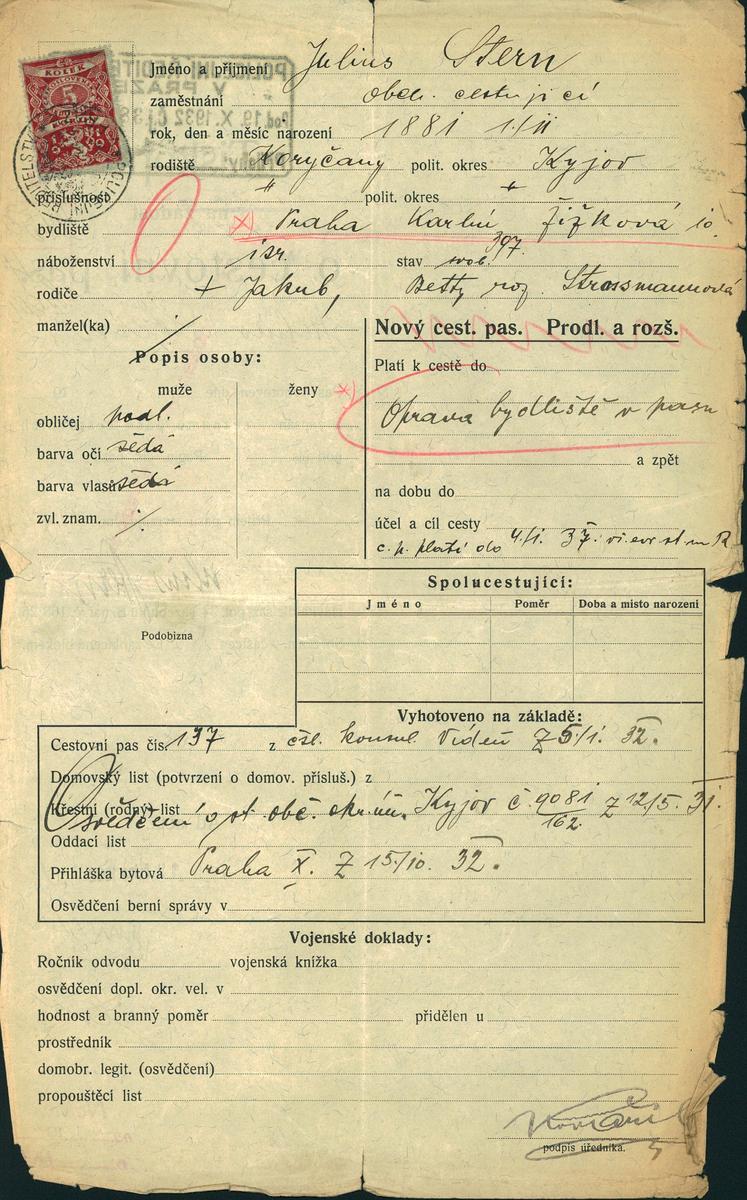 KOLEK
5
Jméno a příjmení Julius Stern
zaměstnání obch. cestující
rok, den a měsíc narození 1881 1/II
rodiště Koryčany polit. okres Kyjov
příslušnost " polit. okres "
bydliště Praha Karlín Žižková 10
397.
náboženství isr. stav svob.
rodiče + Jakub, Betty roz. Strossmannová
manžel(ka) /
Nový cest. pas. Prodl. a rozš.
Popis osoby:
muže ženy
Platí k cestě do
Oprava bydliště v pasu
obličej podl.
barva očí šedá
barva vlasů šedá
zvl. znam. ./.
a zpět
na dobu do
účel a cíl cesty
c. p. platí do 4/I. 37.
Spolucestující:
Jméno Poměr Doba a místo narození
Podobizna
Vyhotoveno na základě:
Cestovní pas čís. 137 z čsl. konsul. Vídeň z 5/I. 32.
Domovský list (potvrzení o domov. přísluš.) z
Křestní (rodný) list
Osvědčení o st. obč. okr. úř. Kyjov č. 9081/162 z 12/5. 31.
Oddací list
Přihláška bytová Praha X. z 15/10. 32.
Osvědčení berní správy v
Vojenské doklady:
Ročník odvodu vojenská knížka
osvědčení dopl. okr. vel. v
hodnost a branný poměr přidělen u
prostředník
domobr. legit. (osvědčení)
propouštěcí list
podpis úředníka.